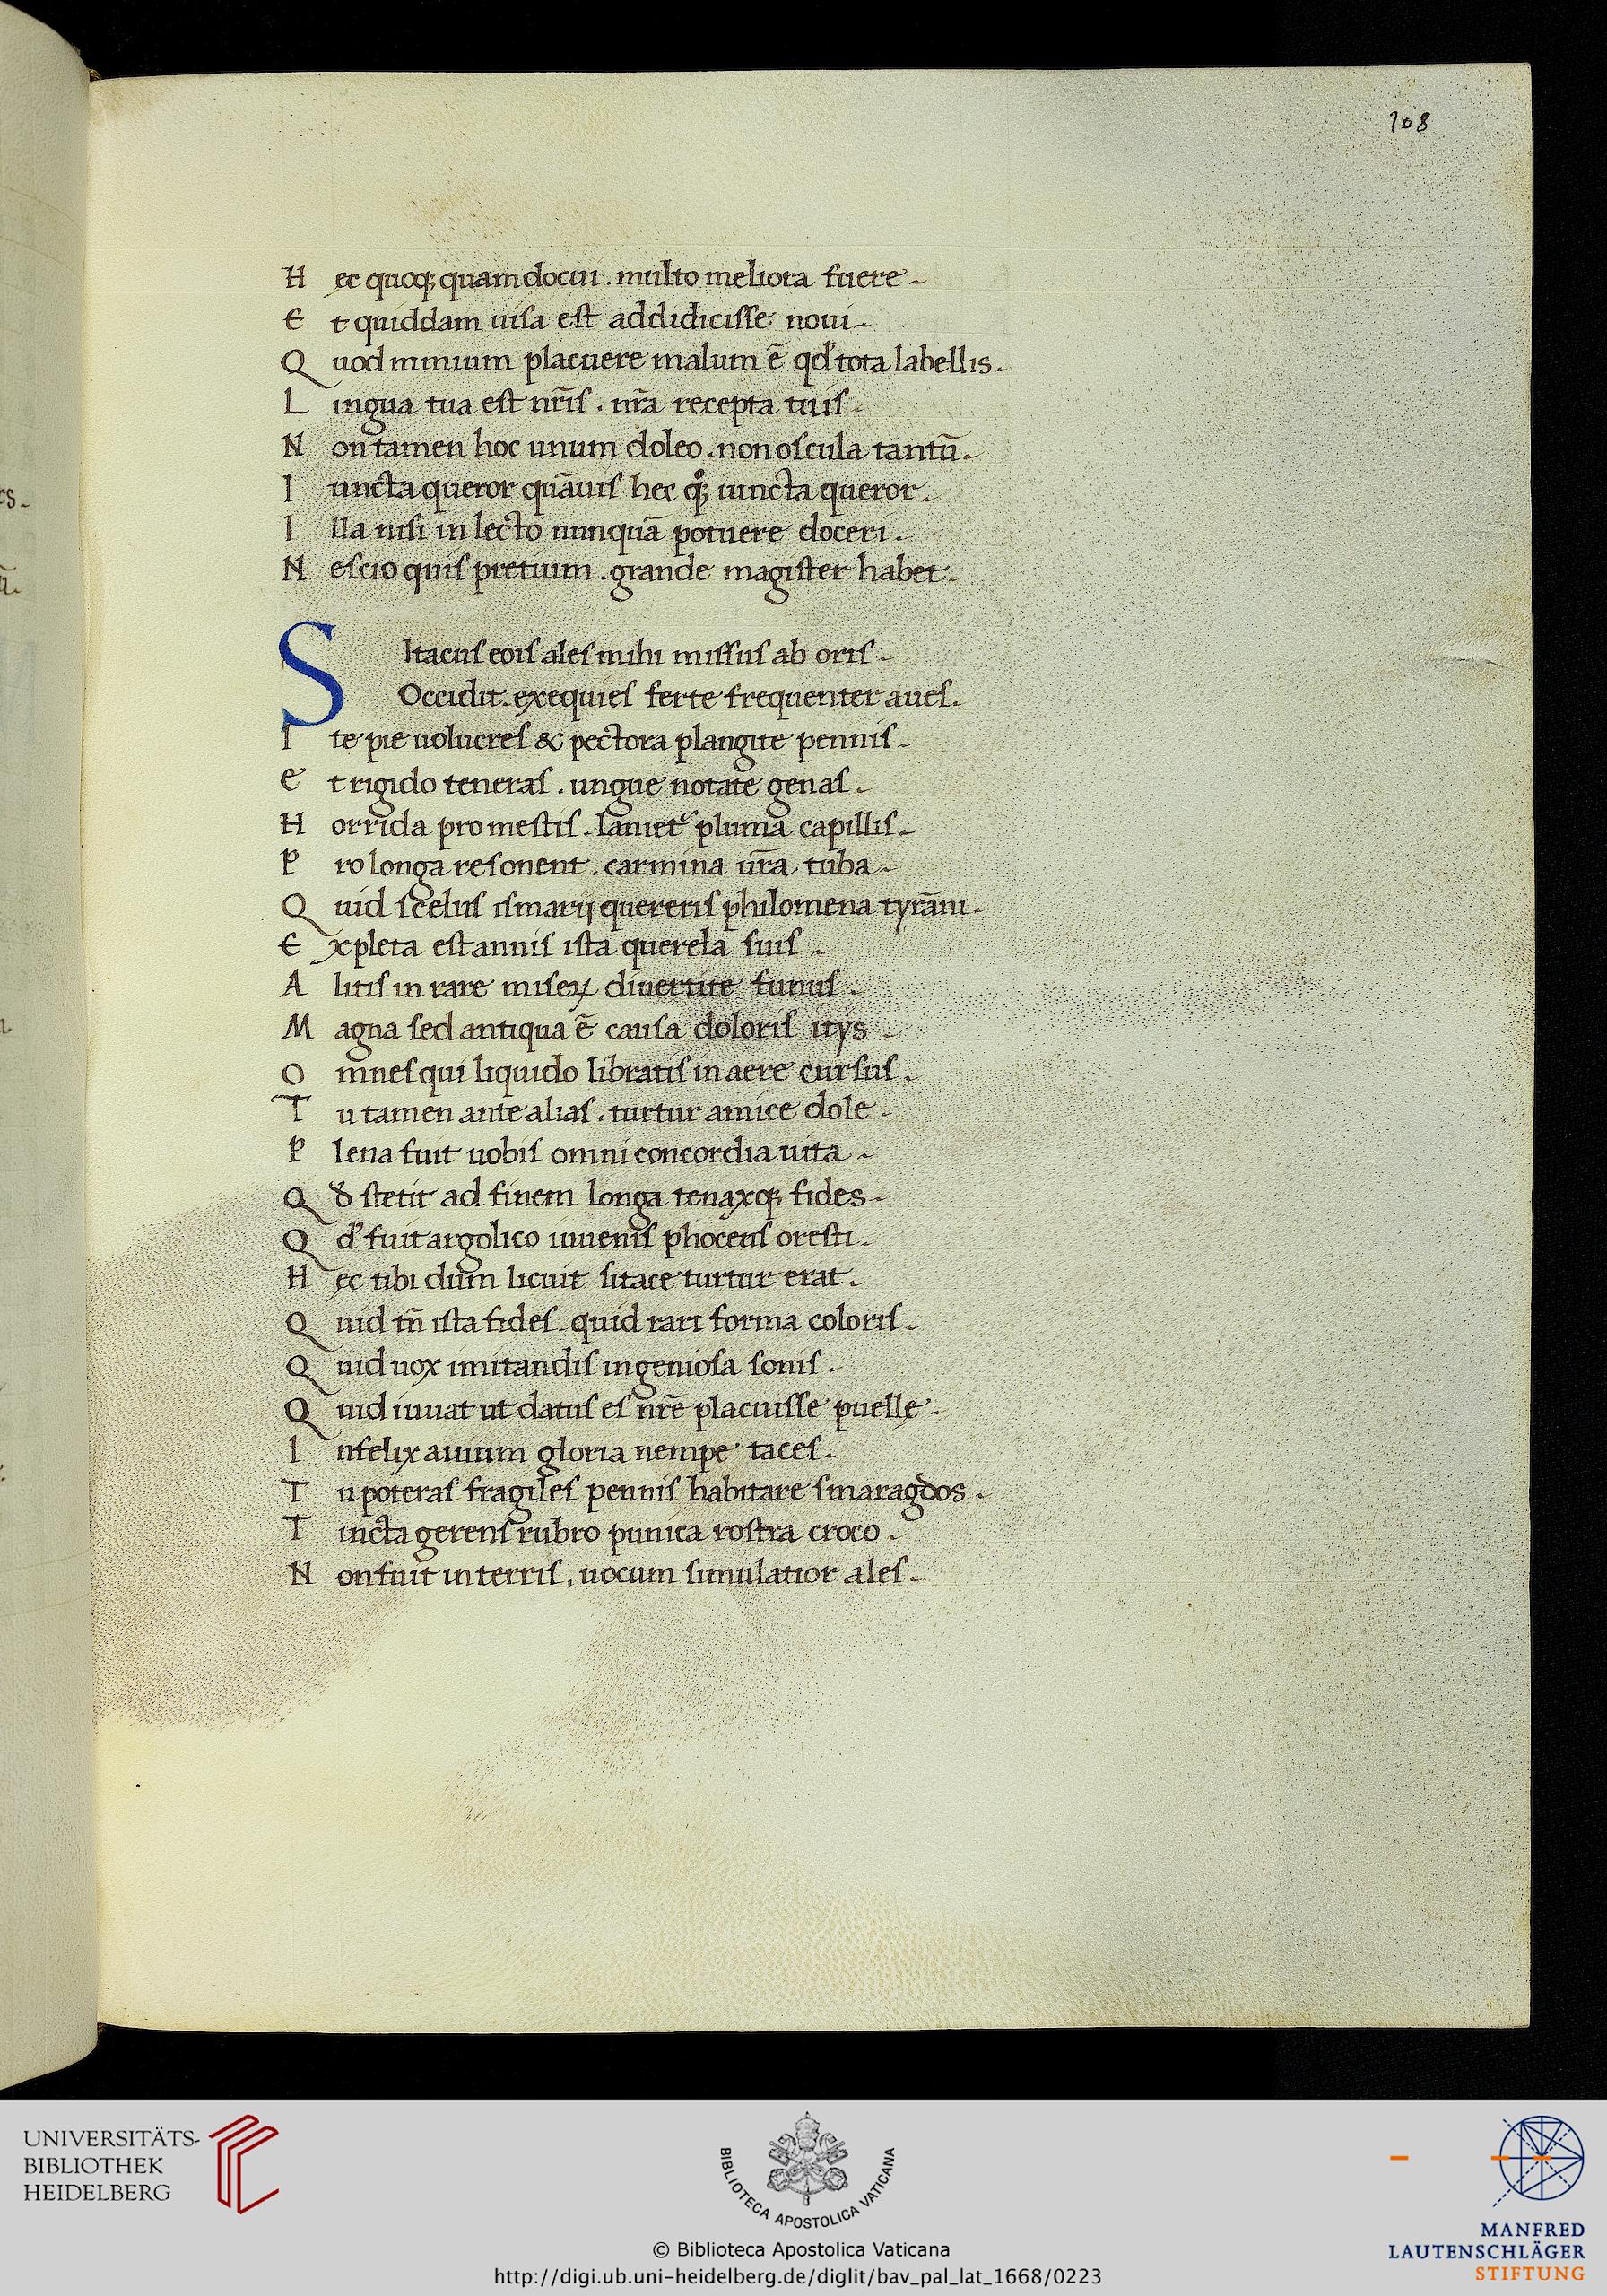 108
Hęc quoq; quam docui . multo meliora fuere .
Et quiddam uisa est addidicisse noui .
Quod nimium placuere malum ē qd' tota labellis .
Lingua tua est nr̄is . nr̄a recepta tuis .
Non tamen hoc unum doleo . non oscula tantū .
Iuncta queror quāuis hec qͦq; iuncta queror .
Illa nisi in lecto nunquā potuere doceri .
Nescio quis pretium . grande magister habet .
SItacus eois ales mihi missus ab oris .
Occidit . exequies ferte frequenter aues .
Ite pie uolucres & pectora plangite pennis .
Et rigido teneras . ungue notate genas .
Horrida pro mestis . lanietᷣ pluma capillis .
Pro longa resonent . carmina ur̄a tuba .
Quid scelus ismarij quereris philomena tyrāni .
Expleta est annis ista querela suis .
Alitis in rare miseꝝ diuertite funus .
Magna sed antiqua ē causa doloris itys .
Omnes qui liquido libratis in aere cursus .
Tu tamen ante alias . turtur amice dole .
Plena fuit uobis omni concordia uita .
Qđ stetit ad finem longa tenaxq; fides .
Qd' fuit argolico iuuenis phoceus oresti .
Hęc tibi dum licuit sitace turtur erat .
Quid tn̄ ista fides . quid rari forma coloris .
Quid uox imitandis ingeniosa sonis .
Quid iuuat ut datus es nr̄ę placuisse puellę .
Infelix auium gloria nempe taces .
Tu poteras fragiles pennis habitare smaragdos .
Tincta gerens rubro punica rostra croco .
Non fuit in terris . uocum simulatior ales .
UNIVERSITÄTS-
BIBLIOTHEK
HEIDELBERG
BIBLIOTECA APOSTOLICA VATICANA
© Biblioteca Apostolica Vaticana
http://digi.ub.uni-heidelberg.de/diglit/bav_pal_lat_1668/0223
MANFRED
LAUTENSCHLÄGER
STIFTUNG